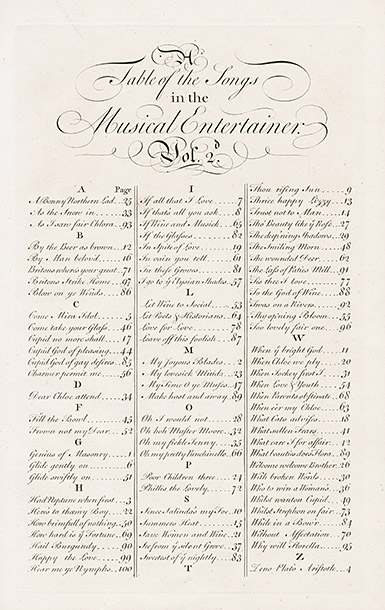 A
Table of the Songs
in the
Musical Entertainer.
Vol. 2.d
A Page
A Bonny Northern Lad..25
As the Snow in....33
As I saw fair Chlora..93
B
By the Beer as brown...12
By Man belov'd....16
Britons where's your great.71
Britons Strike Home..97
Blow on ye Winds...86
C
Come Mira Idol....5
Come take your Glass..46
Cupid no more shall...17
Cupid God of pleasing..44
Cupid God of gay desires.85
Charmer permit me...56
D
Dear Chloe attend...34
F
Fill the Bowl....45
Frown not my Dear..52
G
Genius of Masonry...1
Glide gently on....6
Glide swiftly on...51
H
Had Neptune when first..3
Here's to thee my Boy..22
How brimfull of nothing.50
How hard is ye Fortune..69
Hail Burgundy....90
Happy the Love....99
Hear me ye Nymphs..100
I
If all that I Love....7
If that's all you ask...8
If Wine and Musick..65
If the Glasses....82
In Spite of Love....19
In vain you tell....61
In these Groves....81
I go to ye Elysian Shades.57
L
Let Wine to Social...53
Let Poets & Historians..64
Love for Love....78
Leave off this foolish...87
M
My Joyous Blades...2
My lovesick Minds...23
My Time O ye Muses..47
Make hast and away..89
O
Oh I would not....28
Oh hoh Master Moore..32
Oh my fickle Jenny...35
Oh my pretty Punchinello.66
P
Poor Children three..24
Phillis the Lovely...72
S
Since Jalindas my Foe.10
Summers Heat....15
Save Women and Wine..21
See from ye silent Grove.37
Sweetest of ye nightly..83
T
Thou rising Sun....9
Thrice happy Lizzy..13
Trust not to Man...14
Tho' Beauty like ye Rose.27
The deepning Shadows..29
The Smiling Morn...48
The wounded Deer...62
The Lass of Paties Mill..91
Tis thee I Love....77
Tis the God of Wine...88
Twas on a Rivers...92
Thy op'ning Bloom...55
Too lovely fair one...96
W
When ye bright God...11
When Chloe we ply...20
When Jockey first I..31
When Love & Youth...54
When Parents obstinate.68
When e'er my Chloe...63
What Cato advises...18
What sullen Stars...41
What care I for affair..42
What beauties does Flora.80
Welcome welcome Brother.26
With broken Words...30
Who to win a Woman's..36
Whilst wanton Cupid..49
Whilst Strephon on fair.73
While in a Bow'r...84
Without Affectation..70
Why will Florella...95
Z
Zeno Plato Aristotle..4